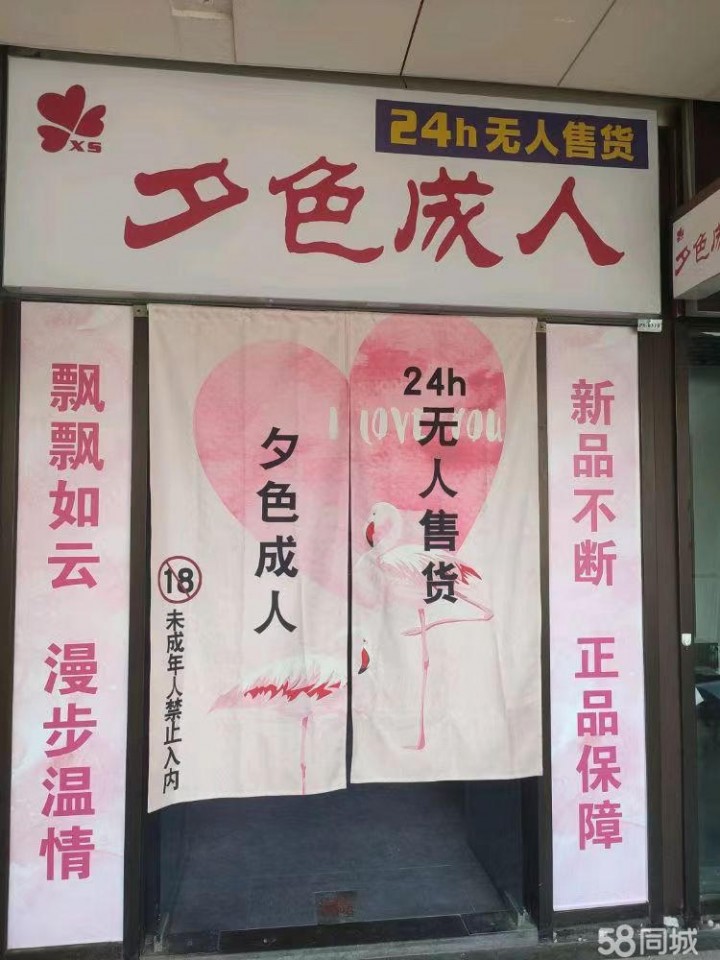 XS
24h无人售货
夕色成人
夕色成
飘飘如云 漫步温情
I LOVE YOU
夕色成人
24h无人售货
18
未成年人禁止入内
新品不断 正品保障
58同城